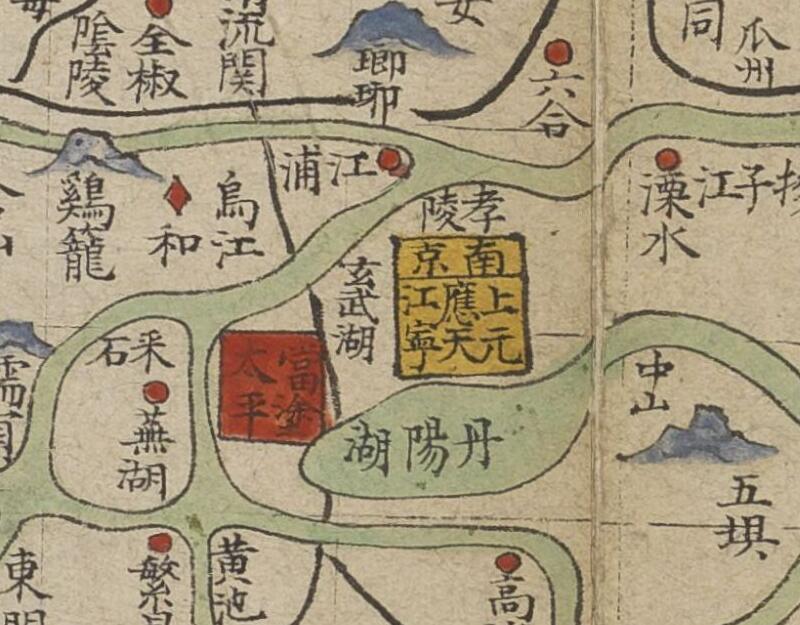 陰陵
全椒
流関
瑯琊
六合
同
瓜州
江浦
雞籠
和
烏江
孝陵
溧水
揚子江
玄武湖
南京
上元
應天
江寧
采石
當塗
太平
蕪湖
丹陽湖
中山
五垻
黃池
東
繁
高